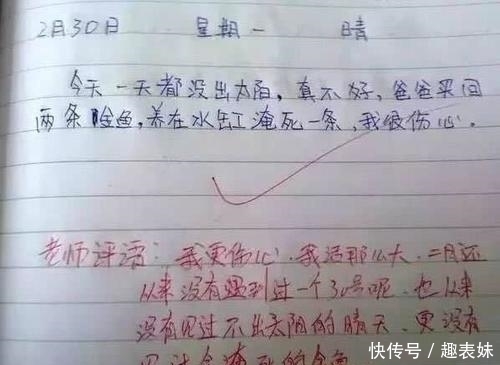 2月30日 星期一 晴
今天一天都没出太阳，真不好，爸爸买回
两条金鱼，养在水缸淹死一条，我很伤心。
老师评语：我更伤心.我活那么大.二月还
从来没有碰到过一个30号呢.也从来
没有见过不出太阳的晴天.更没有
见过会淹死的金鱼
快传号／趣表妹